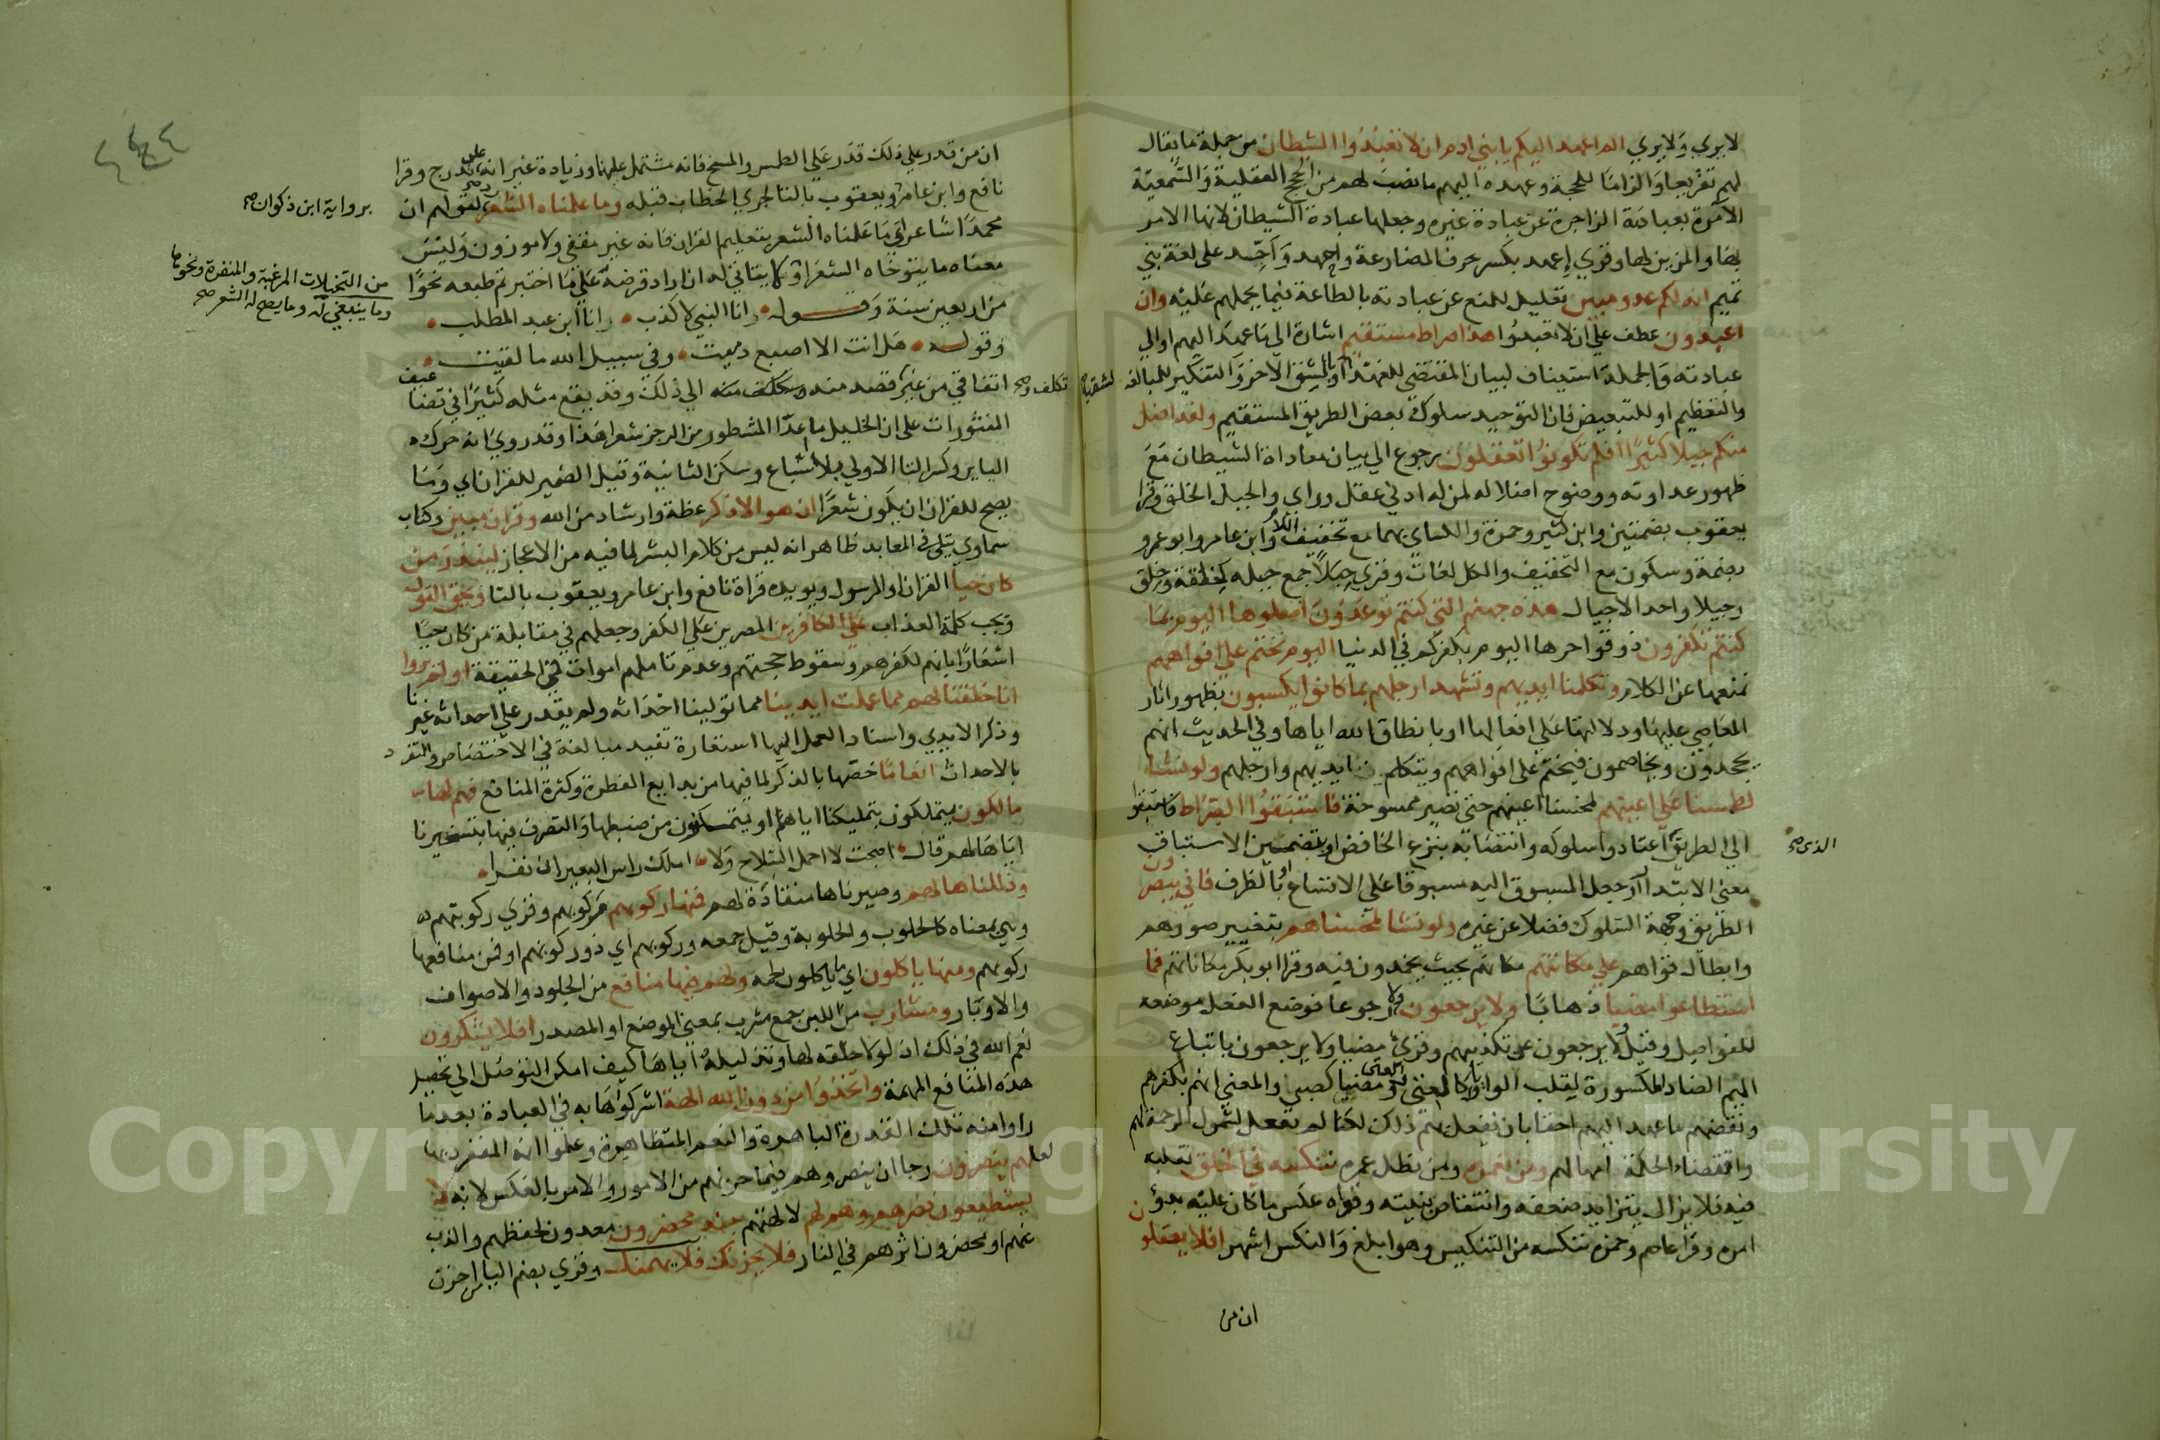 لا يري ولا يري الم اعهد اليكم يا بني ادم ان لا تعبدوا الشيطان من جملة ما يقال
لهم تقريعا والزاما للحجة وعهده اليهم ما نصب لهم من الحجج العقلية والسمعية
الآمرة بعبادته الزاجرة عن عبادة غيره وجعلها عبادة الشيطان لانها الامر
بها والمزين لها وقري إعهد بكسر حرف المضارعة واحهد واحد على لغة بني
تميم انه لكم عدو مبين تعليل للمنع عن عبادته بالطاعة فيما يحملهم عليه وان
اعبدون عطف علي ان لا تعبدوا هذا صراط مستقيم اشارة الي ما عهد اليهم او الي
عبادته والجملة استيناف لبيان المقتضي للعهد او بالشق الاخر والتنكير للمبالغة
والتعظيم او للتبعيض فان التوحيد سلوك بعض الطريق المستقيم ولقد اضل
منكم جبلا كثيرا افلم تكونوا تعقلون رجوع الي بيان معاداة الشيطان مع
ظهور عداوته ووضوح اضلاله لمن له ادني عقل وراي والجبل الخلق وقرا
يعقوب بضمتين وابن كثير وحمزة والكساي بهما مع تخفيف اللام وابن عامر وابو عمرو
بضمة وسكون مع التخفيف والكل لغات وقري جبلا جمع جبلة كخلقة وخلق
وجيلا واحد الاجيال هذه جهنم التي كنتم توعدون اصلوها اليوم بما
كنتم تكفرون ذوقوا حرها اليوم بكفركم في الدنيا اليوم نختم علي افواههم
نمنعها عن الكلام وتكلمنا ايديهم وتشهد ارجلهم بما كانوا يكسبون بظهور اثار
المعاصي عليها ودلالتها علي افعالها او بانطاق الله اياها وفي الحديث انهم
يجحدون ويخاصمون فيختم علي افواههم ويتكلم ايديهم وارجلهم ولو نشا
لطمسنا علي اعينهم لمحسنا اعينهم حتي تصير ممسوحة فاستبقوا الصراط فاستبقوا
الي الطريق اعتادوا سلوكه وانتصابه بنزع الخافض او بتضمين الاستباق
الذي صح
معني الابتدار او جعل المسبوق اليه مسبوقا علي الاتساع او بالظرف فاني يبصرون
الطريق وجهة السلوك فضلا عن غيره ولو نشا لمسخناهم بتغيير صورهم
وابطال قواهم علي مكانتهم مكانهم بحيث يجمدون فيه وقرا ابو بكر مكاناتهم فما
استطاعوا مضيا ذهابا ولا يرجعون ولا رجوعا فوضع الفعل موضعه
للفواصل وقيل لا يرجعون عن تكذيبهم وقري مضيا ولا يرجعون باتباع
الميم الضاد المكسورة لقلب الواو ياء كالمعتي ومضيا كصبي والمعني انهم بكفرهم
ونقضهم ما عهد اليهم احقا بان نفعل بهم ذلك لكنا لم نفعل لشمول الرحمة لهم
واقتضاء الحكمة امهالهم ومن نعمره ومن نطل عمره ننكسه في الخلق نقلبه
فيه فلا يزال يتزايد ضعفه وانتقاص بنيته وقواه عكس ما كان عليه بدؤ
امره وقرا عاصم وحمزه ننكسه من التنكيس وهو ابلغ والنكس اشهر افلا يعقلون
ان من
ان من قدر علي ذلك قدر علي الطمس والمسخ فانه مشتمل عليهما وزيادة غير انه علي تدرج وقرا
نافع وابن عامر ويعقوب بالتا لجري الخطاب قبله وما علمناه الشعر رد لقولهم ان
برواية ابن ذكوان صح
محمدا شاعر اي ما علمناه الشعر بتعليم القران فانه غير مقفي ولا موزون وليس
معناه ما يتوخاه الشعرا ولا يتاتي له ان اراد قرضه علي ما اختبرتم طبعه نحوا
من التخيلات المرغبة والمنفرة ونحوها
وما ينبغي له وما يصح له الشعر صح
من اربعين سنة وقوله انا النبي لا كذب انا ابن عبد المطلب
وقوله هل انت الا اصبع دميت وفي سبيل الله ما لقيت
اتفاقي من غير قصد منه الي ذلك وقد يقع مثله كثيرا في تضاعيف
تكلف صح
المنثورات علي ان الخليل ما عد المشطور من الرجز شعرا هذا وقد روي انه حرك
اليا‌ين وكسر التا الاولي بلا اشباع وسكن الثانية وقيل الضمير للقران اي وما
يصح للقران ان يكون شعرا ان هو الا ذكر عظة وارشاد من الله وقران مبين وكتاب
سماوي يتلي في المعابد ظاهر انه ليس من كلام البشر لما فيه من الاعجاز لينذر من
كان حيا القران او الرسول ويويده قراة نافع وابن عامر ويعقوب بالتا ويحق القول
وتجب كلمة العذاب علي الكافرين المصرين علي الكفر وجعلهم في مقابلة من كان حيا
اشعارا بانهم لكفرهم وسقوط حجتهم وعدم تاملهم اموات في الحقيقة اولم يروا
انا خلقنا لهم مما عملت ايدينا مما تولينا احداثه ولم يقدر علي احداثه غيرنا
وذكر الايدي واسناد العمل اليها استعارة تفيد مبالغة في الاختصاص والتفرد
بالاحداث انعاما خصها بالذكر لما فيها من بدايع الفطرة وكثرة المنافع فهم لها
مالكون متملكون بتمليكنا اياها او يتمكنون من ضبطها والتصرف فيها بتسخيرنا
اياها لهم قال اصبحت لا احمل السلاح ولا املك راس البعير ان نفرا
وذللناها لهم وصيرناها منقادة لهم فمنها ركوبهم مركوبهم وقري ركوبتهم
وهي بمعناه كالحلوب والحلوبة وقيل جمعه وركوبهم اي ذو ركوبهم او فمن منافعها
ركوبهم ومنها ياكلون اي ما ياكلون لحمه ولهم فيها منافع من الجلود والاصواف
والاوبار ومشارب من اللبن جمع مشرب بمعني الموضع او المصدر افلا يشكرون
نعم الله في ذلك اذ لولا خلقه لها وتذليله اياها كيف امكن التوصل الي تحصيل
هذه المنافع المهمة واتخذوا من دون الله الهة اشركوها به في العبادة بعد ما
راوا منه تلك القدرة الباهرة والنعم المتظاهرة وعلموا انه المتفرد بها
لعلهم ينصرون رجا ان ينصروهم فيما حزبهم من الامور والامر بالعكس لانه لا
يستطيعون نصرهم وهم لهم لالهتهم جند محضرون معدون لحفظهم والذب
عنهم او محضرون اثرهم في النار فلا يحزنك فلا يهمنك وقري بضم اليا من احزن